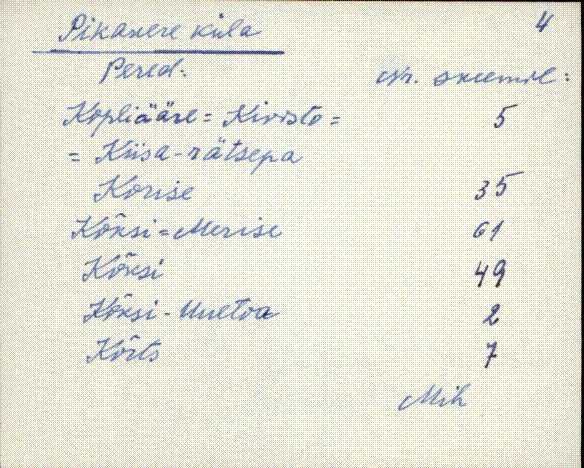 4
Pikavere küla
Pered: Nr. skeemil:
Kopliääre = Kivisto = 5
= Kiisa-rätsepa
Korise 35
Kõksi = Merise 61
Kõksi 49
Kõksi-Uuetoa 2
Kõrts 7
Mih